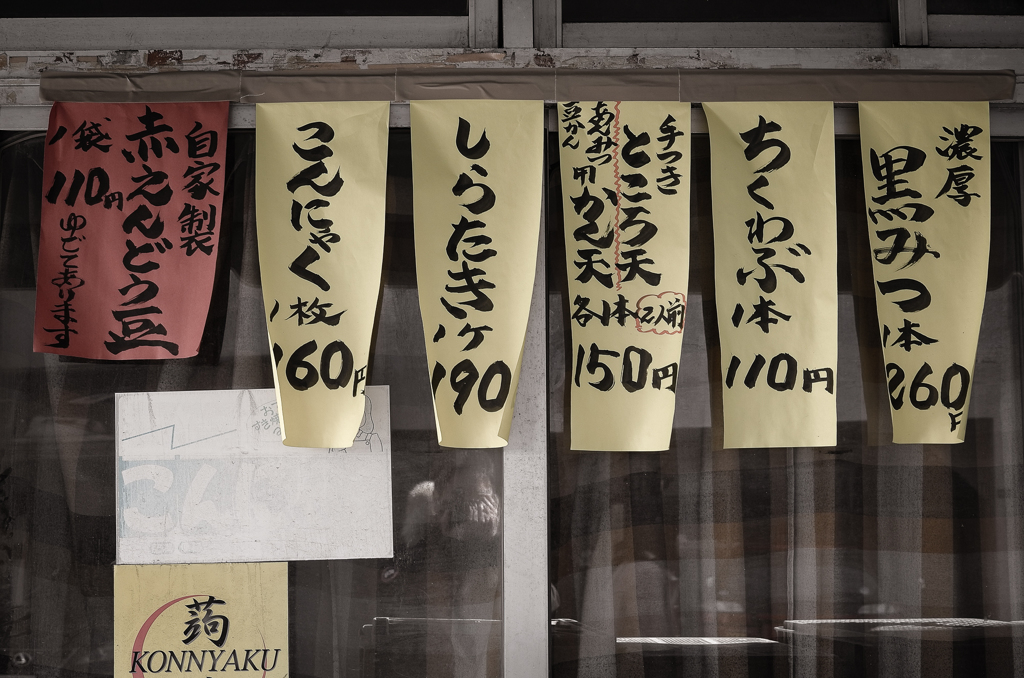 自家製
赤えんどう豆
1袋
110円
ゆでてあります
こんにゃく
1枚
160円
しらたき
1ケ
190
手つき
ところ天
あんみつ
豆かん
用
かん天
各1本
2人前
150円
ちくわぶ
1本
110円
濃厚
黒みつ
1本
260円
こん
蒟
KONNYAKU